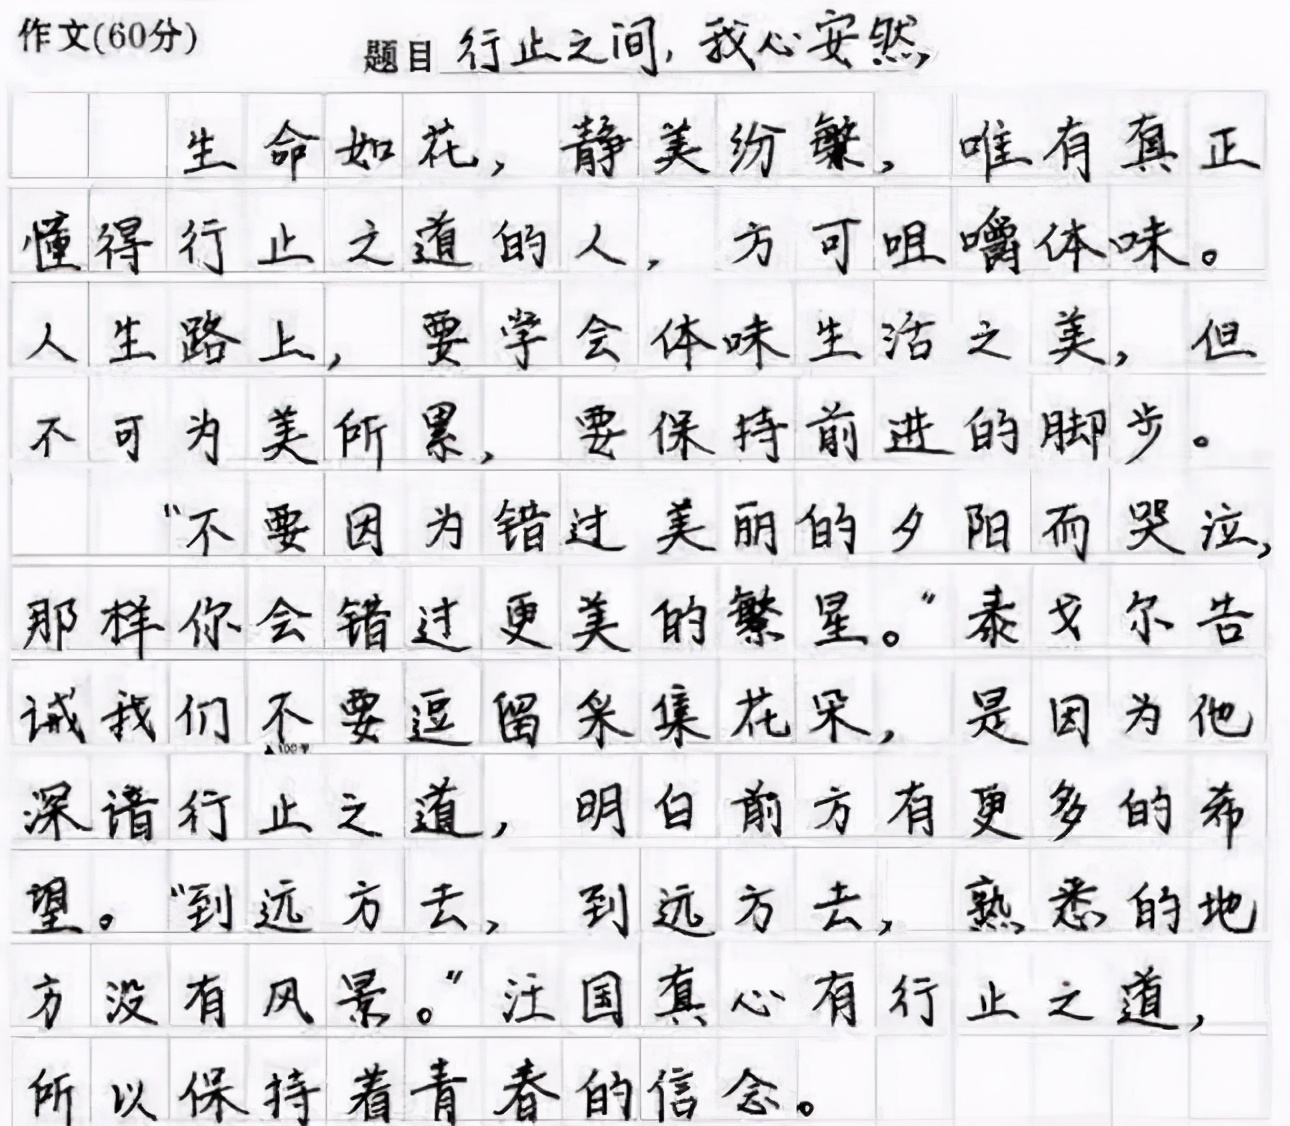 作文(60分)
题目 行止之间，我心安然
生命如花，静美纷繁，唯有真正
懂得行止之道的人，方可咀嚼体味。
人生路上，要学会体味生活之美，但
不可为美所累，要保持前进的脚步。
“不要因为错过美丽的夕阳而哭泣，
那样你会错过更美的繁星。”泰戈尔告
诫我们不要逗留采集花朵，是因为他
▲100字
深谙行止之道，明白前方有更多的希
望。“到远方去，到远方去，熟悉的地
方没有风景。”汪国真心有行止之道，
所以保持着青春的信念。